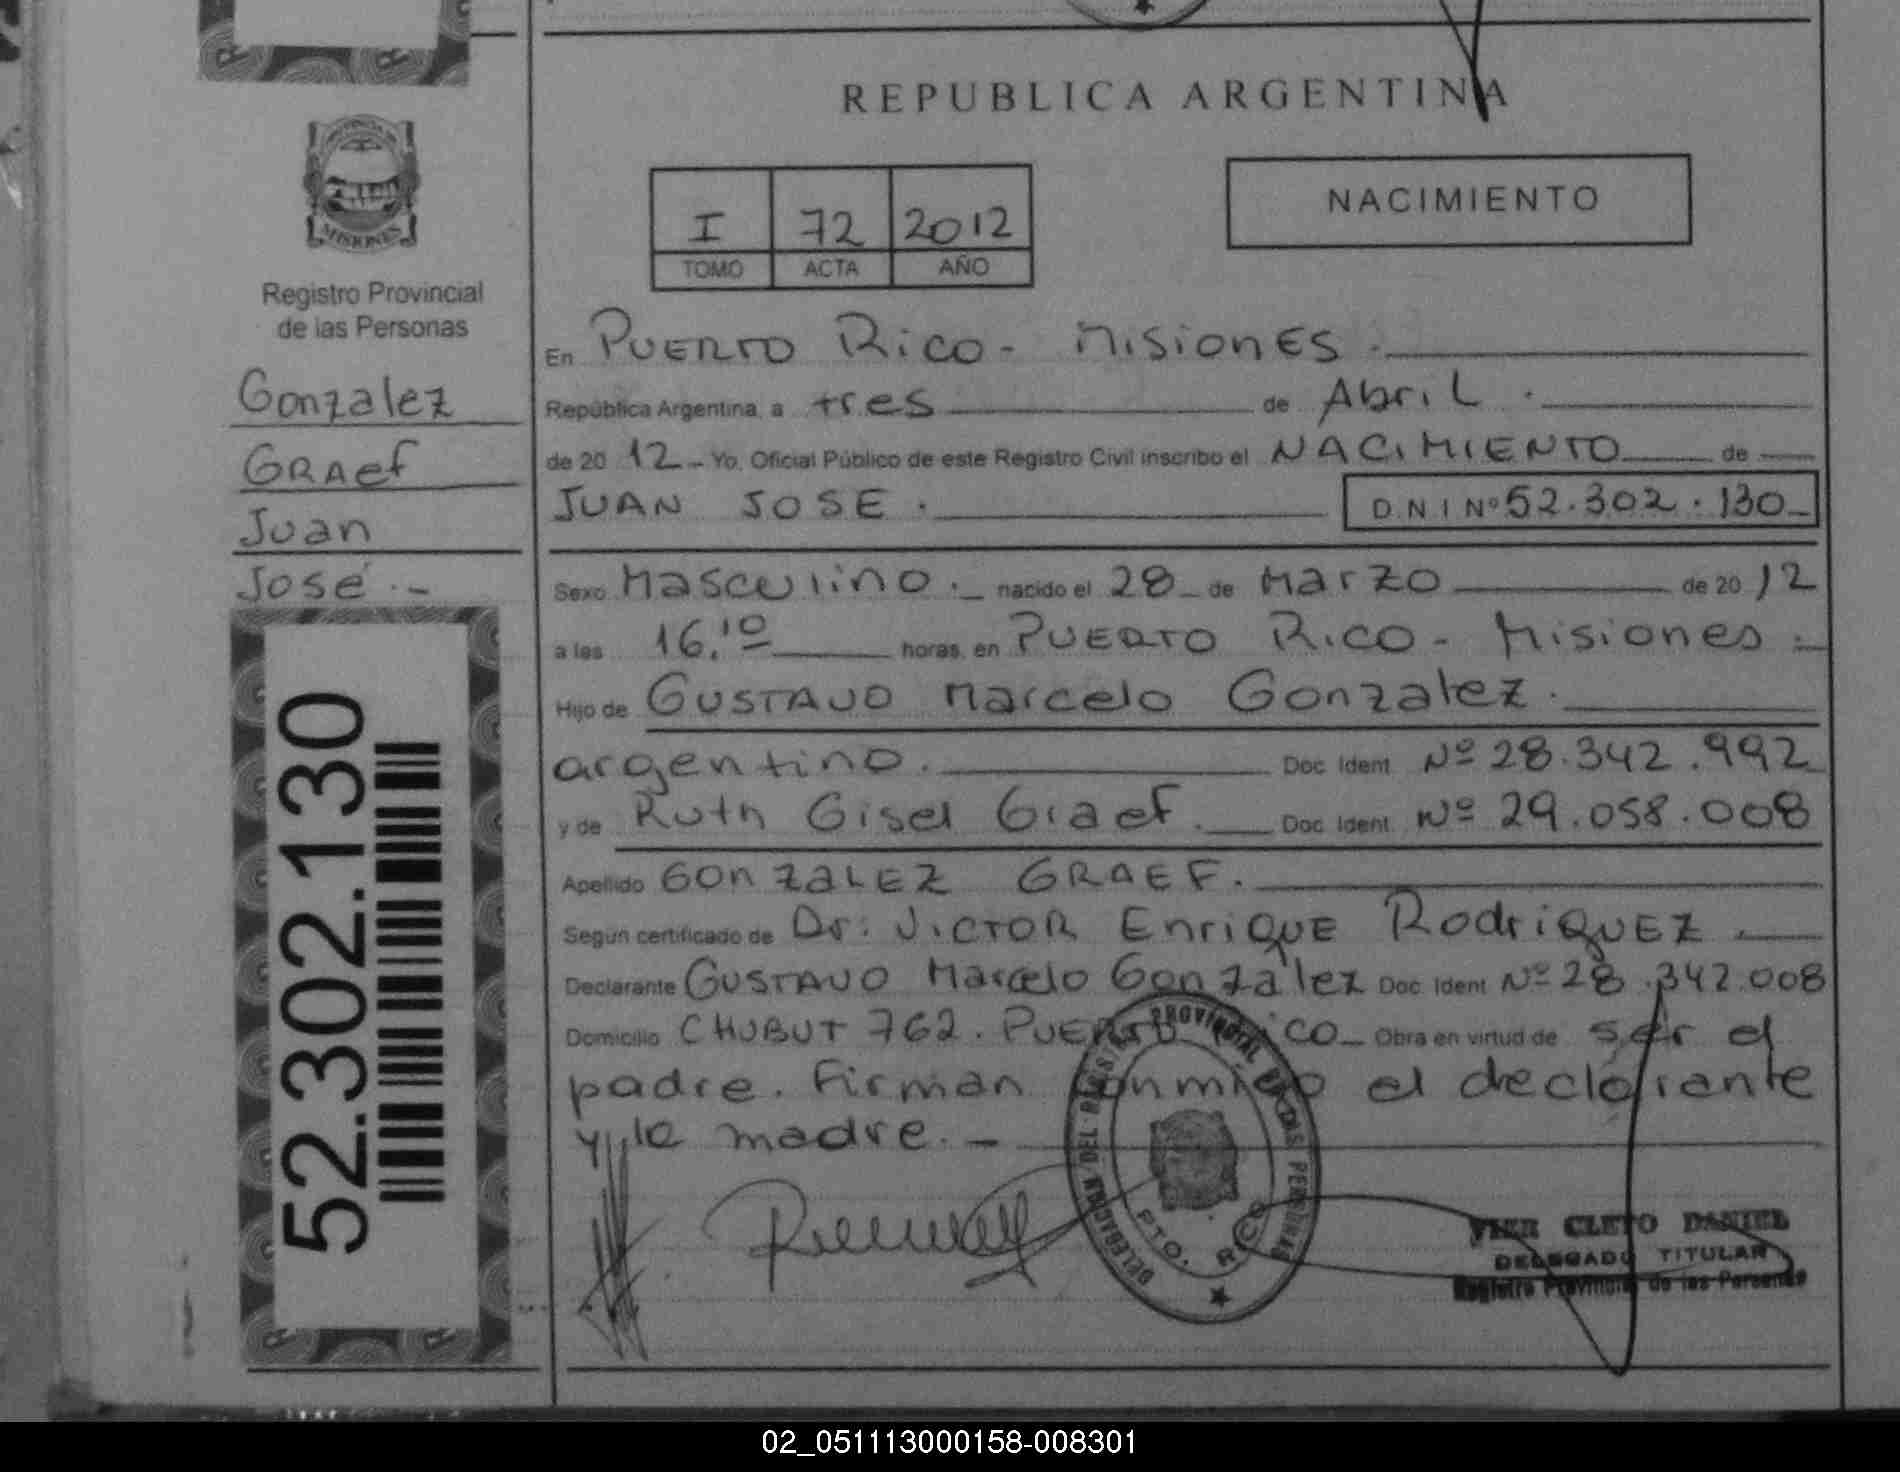 REPUBLICA ARGENTINA
I 72 2012
TOMO ACTA AÑO
NACIMIENTO
PROVINCIA DE
MISIONES
Registro Provincial
de las Personas
Gonzalez
GRAef
Juan
José.-
52.302.130
En PUERTO Rico - Misiones.
República Argentina, a tres de Abril.
de 20 12 - Yo, Oficial Público de este Registro Civil inscribo el NACIMIENTO de
JUAN JOSE. D.N.I Nº 52.302.130
Sexo Masculino. nacido el 28 de Marzo de 2012
a las 16.10 horas, en PUERTO Rico - Misiones.
Hijo de GUSTAVO Marcelo Gonzalez.
argentino. Doc. Ident. Nº 28.342.992
y de Ruth Gisel Graef. Doc. Ident. Nº 29.058.008
Apellido GONZALEZ GRAEF.
Según certificado de Dr: VICTOR EnriQUE RodriGUEZ.
Declarante GUSTAVO Marcelo Gonzalez Doc. Ident. Nº 28.342.008
Domicilio CHUBUT 762. PUERTO Rico Obra en virtud de ser el
padre. Firman conmigo el declarante
y la madre. -
DELEGACION DEL PROVINCIAL DE LAS PERSONAS
PTO. RICO
VIER CLETO DANIEL
DELEGADO TITULAR
Registro Provincial de las Personas
02_051113000158-008301